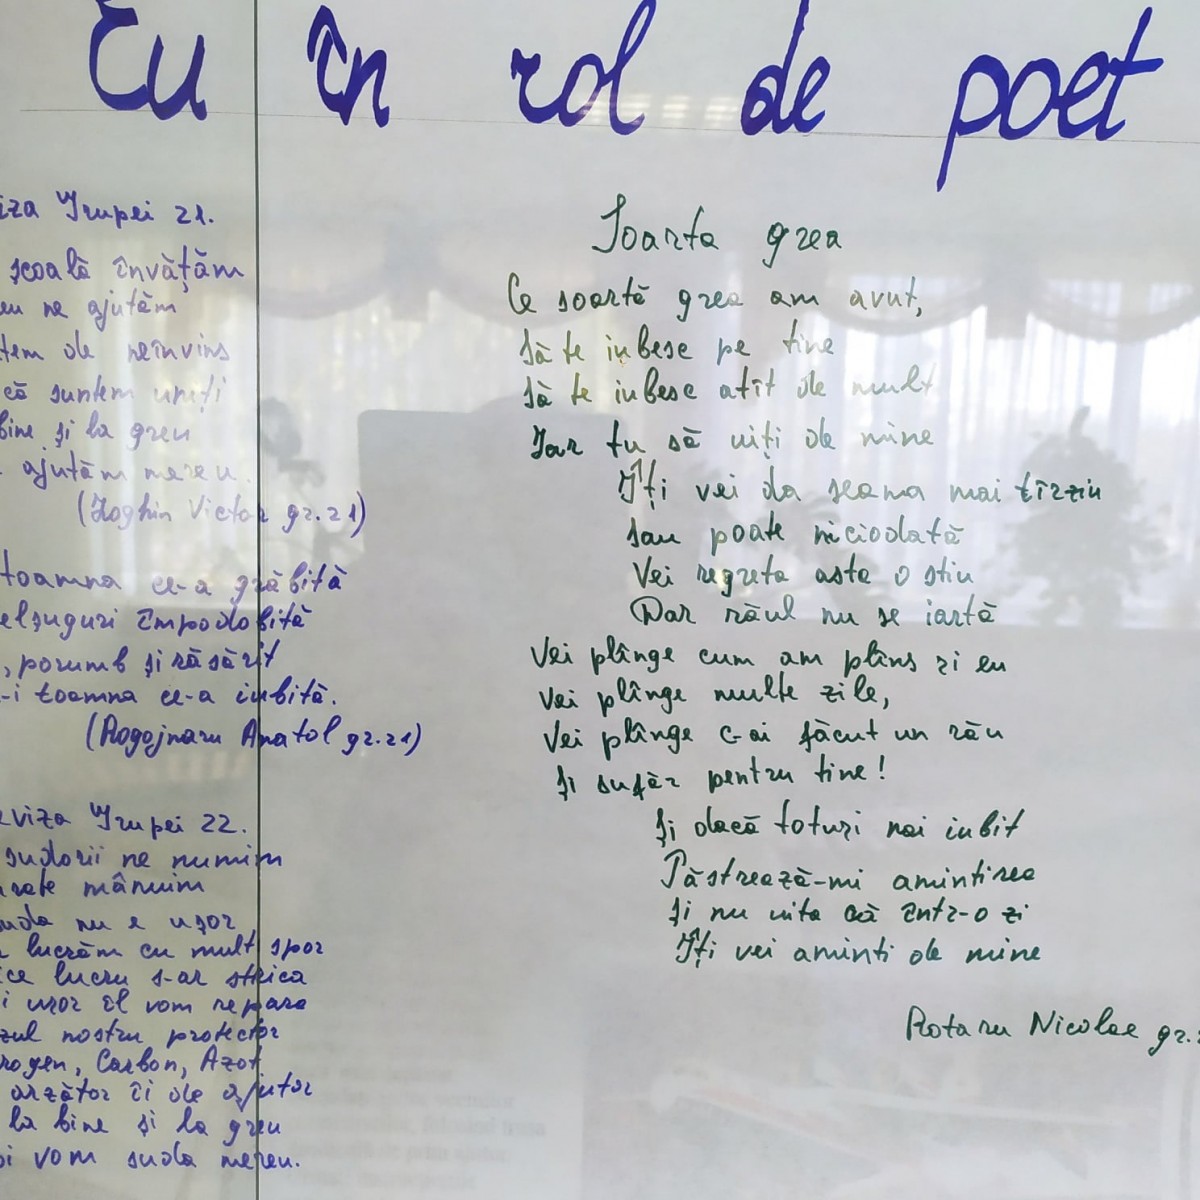 Eu în rol de poet
iza Grupei 21.
școală învățăm
eu ne ajutăm
tem de neînvins
că suntem uniți
bine și la greu
ajutăm mereu.
(Zoghin Victor gr.21)
toamna ce-a grăbită
elșuguri împodobită
, porumb și răsărit
-i toamna ce-a iubită.
(Rogojnaru Anatol gr.21)
eviza Grupei 22.
sudorii ne numim
rate mânuim
uda nu e ușor
lucrăm cu mult spor
ice lucru s-ar strica
i ușor îl vom repara
zul nostru protector
rogen, Carbon, Azot
arzător îi de ajutor
la bine și la greu
oi vom suda mereu.
Soarta grea
Ce soartă grea am avut,
Să te iubesc pe tine
Să te iubesc atît de mult
Iar tu să uiți de mine
Iți vei da seama mai tîrziu
sau poate niciodată
Vei regreta asta o stiu
Dar răul nu se iartă
Vei plînge cum am plîns și eu
Vei plînge multe zile,
Vei plînge c-ai făcut un rău
Și sufăr pentru tine!
Și dacă toturi nai iubit
Păstrează-mi amintirea
Și nu uita că într-o zi
Iți vei aminti de mine
Rotaru Nicolae gr.